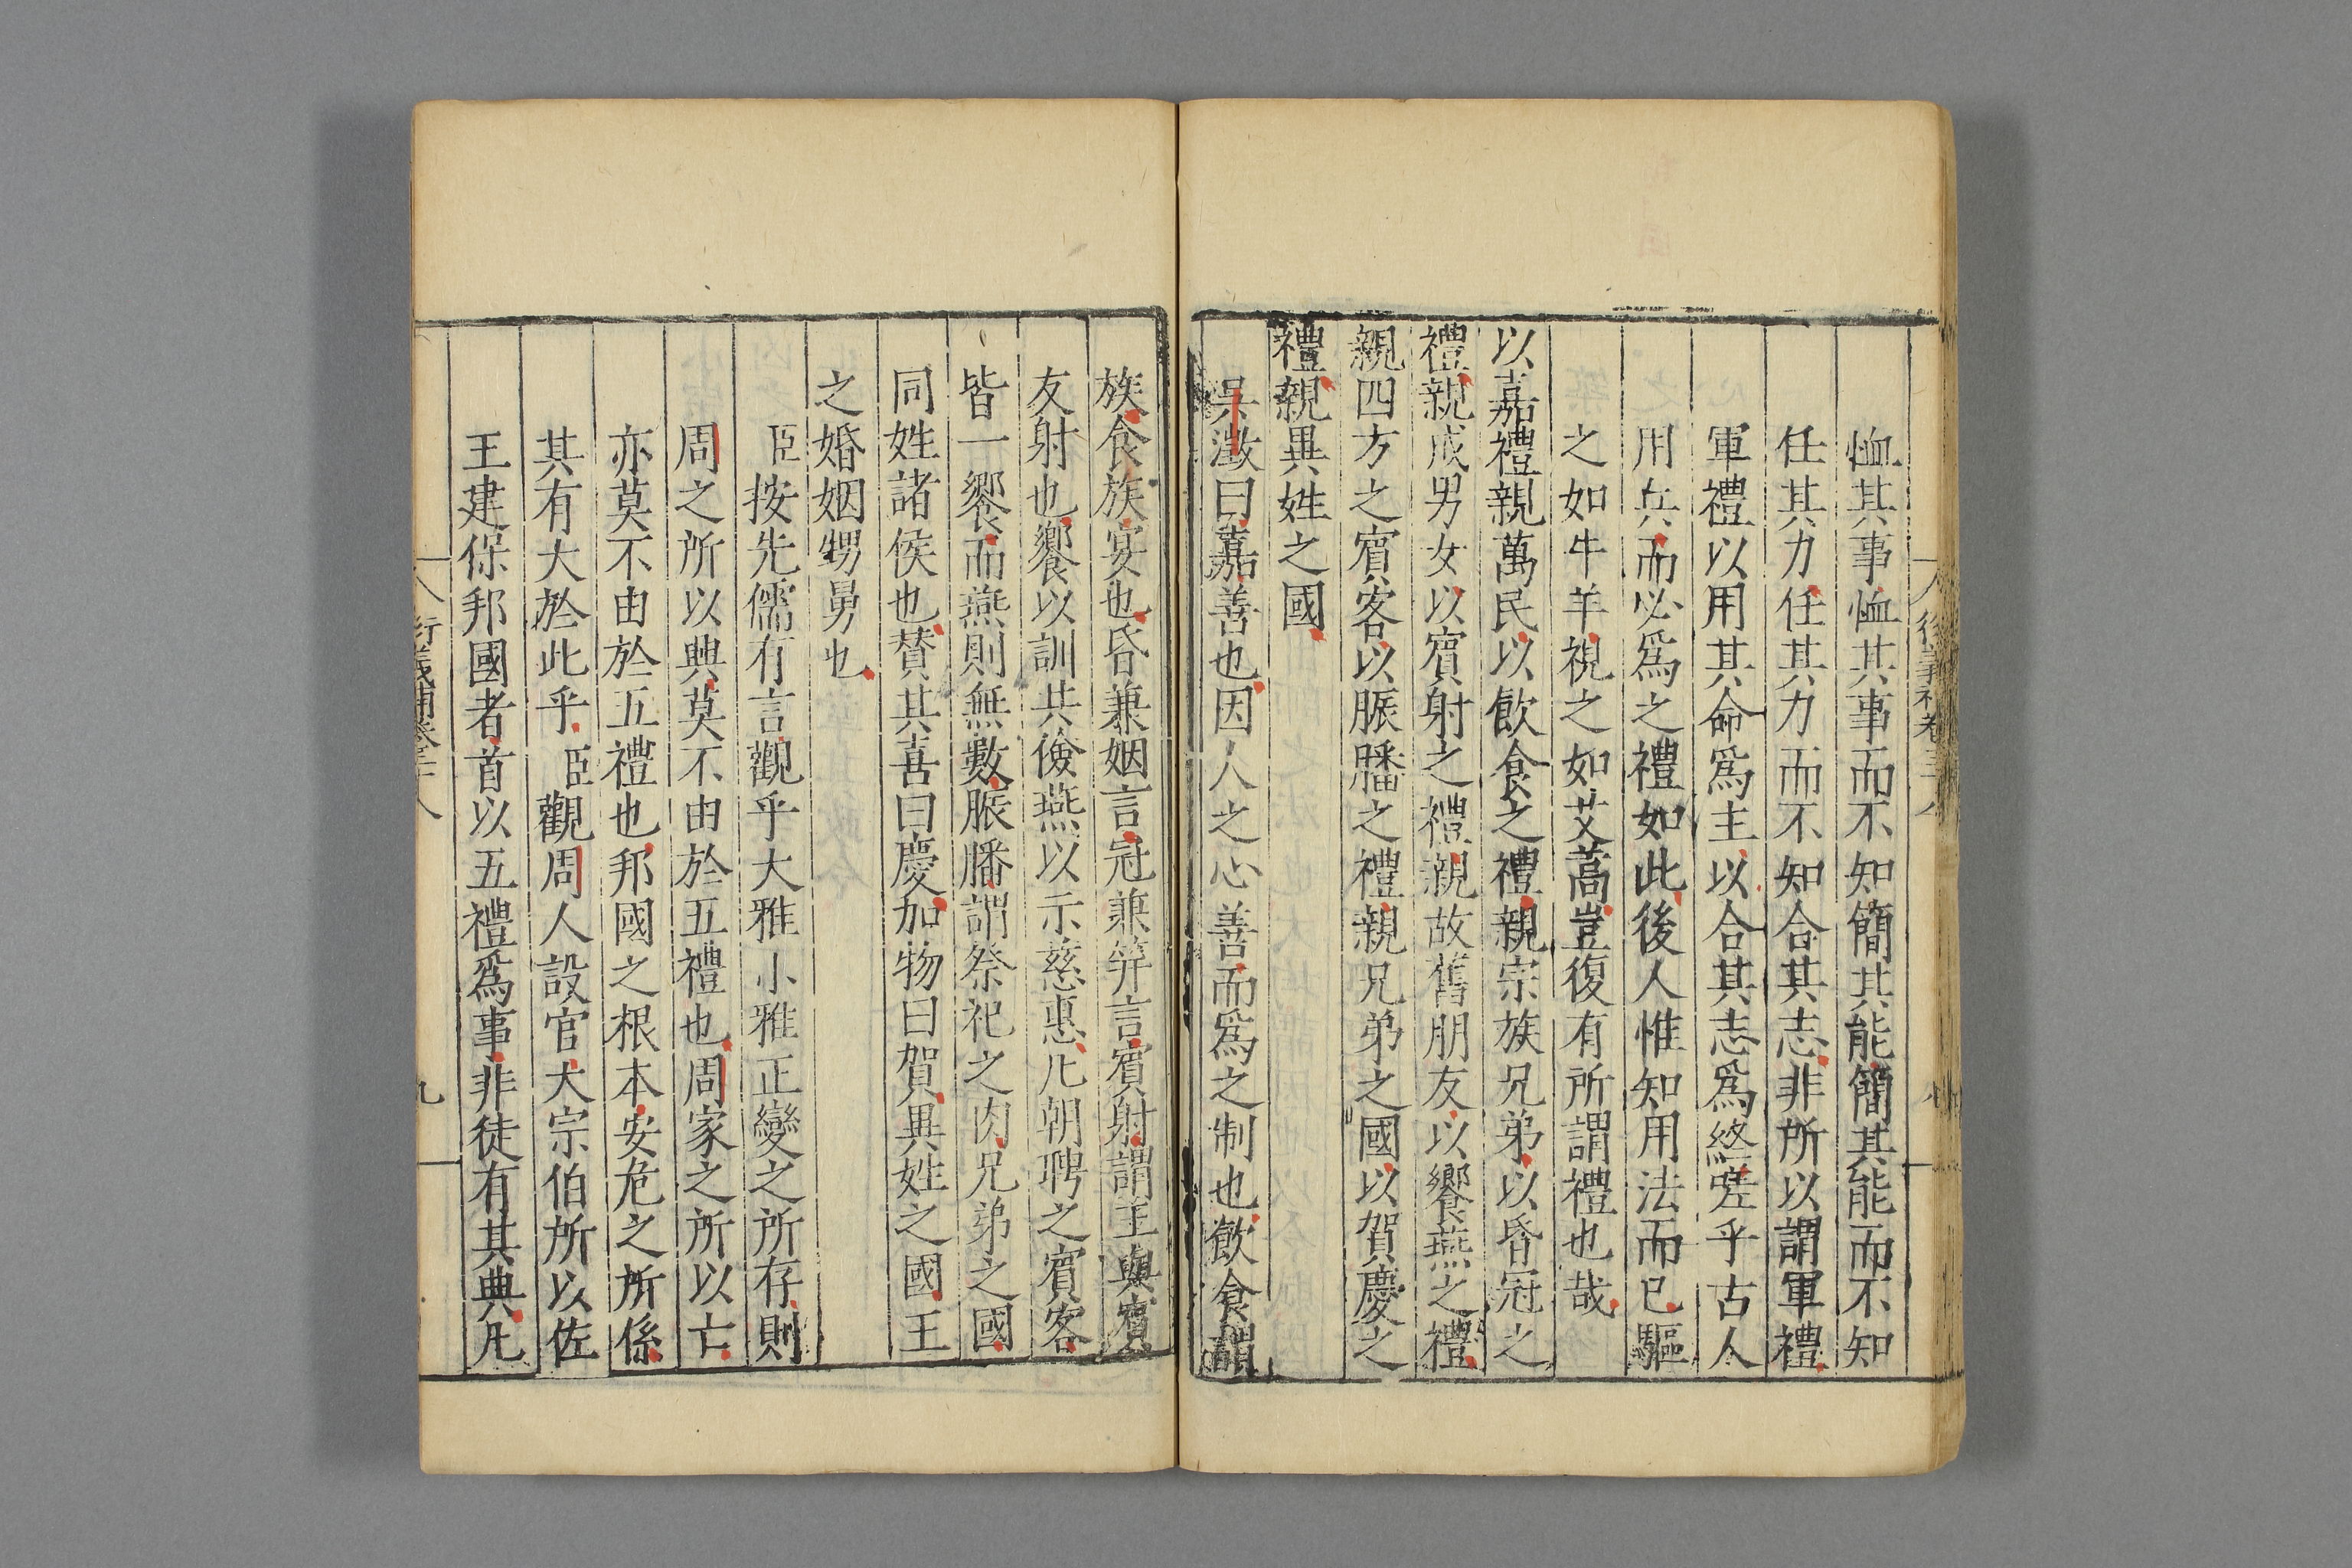 恤其事恤其事而不知簡其能簡其能而不知
任其力任其力而不知合其志非所以謂軍禮
軍禮以用其命爲主以合其志爲終嗟乎古人
用兵而必爲之禮如此後人惟知用法而已驅
之如牛羊視之如艾蒿豈復有所謂禮也哉
以嘉禮親萬民以飮食之禮親宗族兄弟以昏冠之
禮親成男女以賓射之禮親故舊朋友以饗燕之禮
親四方之賓客以脤膰之禮親兄弟之國以賀慶之
禮親異姓之國
吳澂曰嘉善也因人之心善而爲之制也飮食謂
族食族宴也昏兼姻言冠兼筓言賓射謂王與賓
友射也饗以訓共儉燕以示慈惠凡朝聘之賓客
皆一饗而燕則無數脤膰謂祭祀之肉兄弟之國
同姓諸侯也賛其喜曰慶加物曰賀異姓之國王
之婚姻甥舅也
臣按先儒有言觀乎大雅小雅正變之所存則
周之所以興莫不由於五禮也周家之所以亡
亦莫不由於五禮也邦國之根本安危之所係
其有大於此乎臣觀周人設官大宗伯所以佐
王建保邦國者首以五禮爲事非徒有其典凡
衍義補卷三十八
九